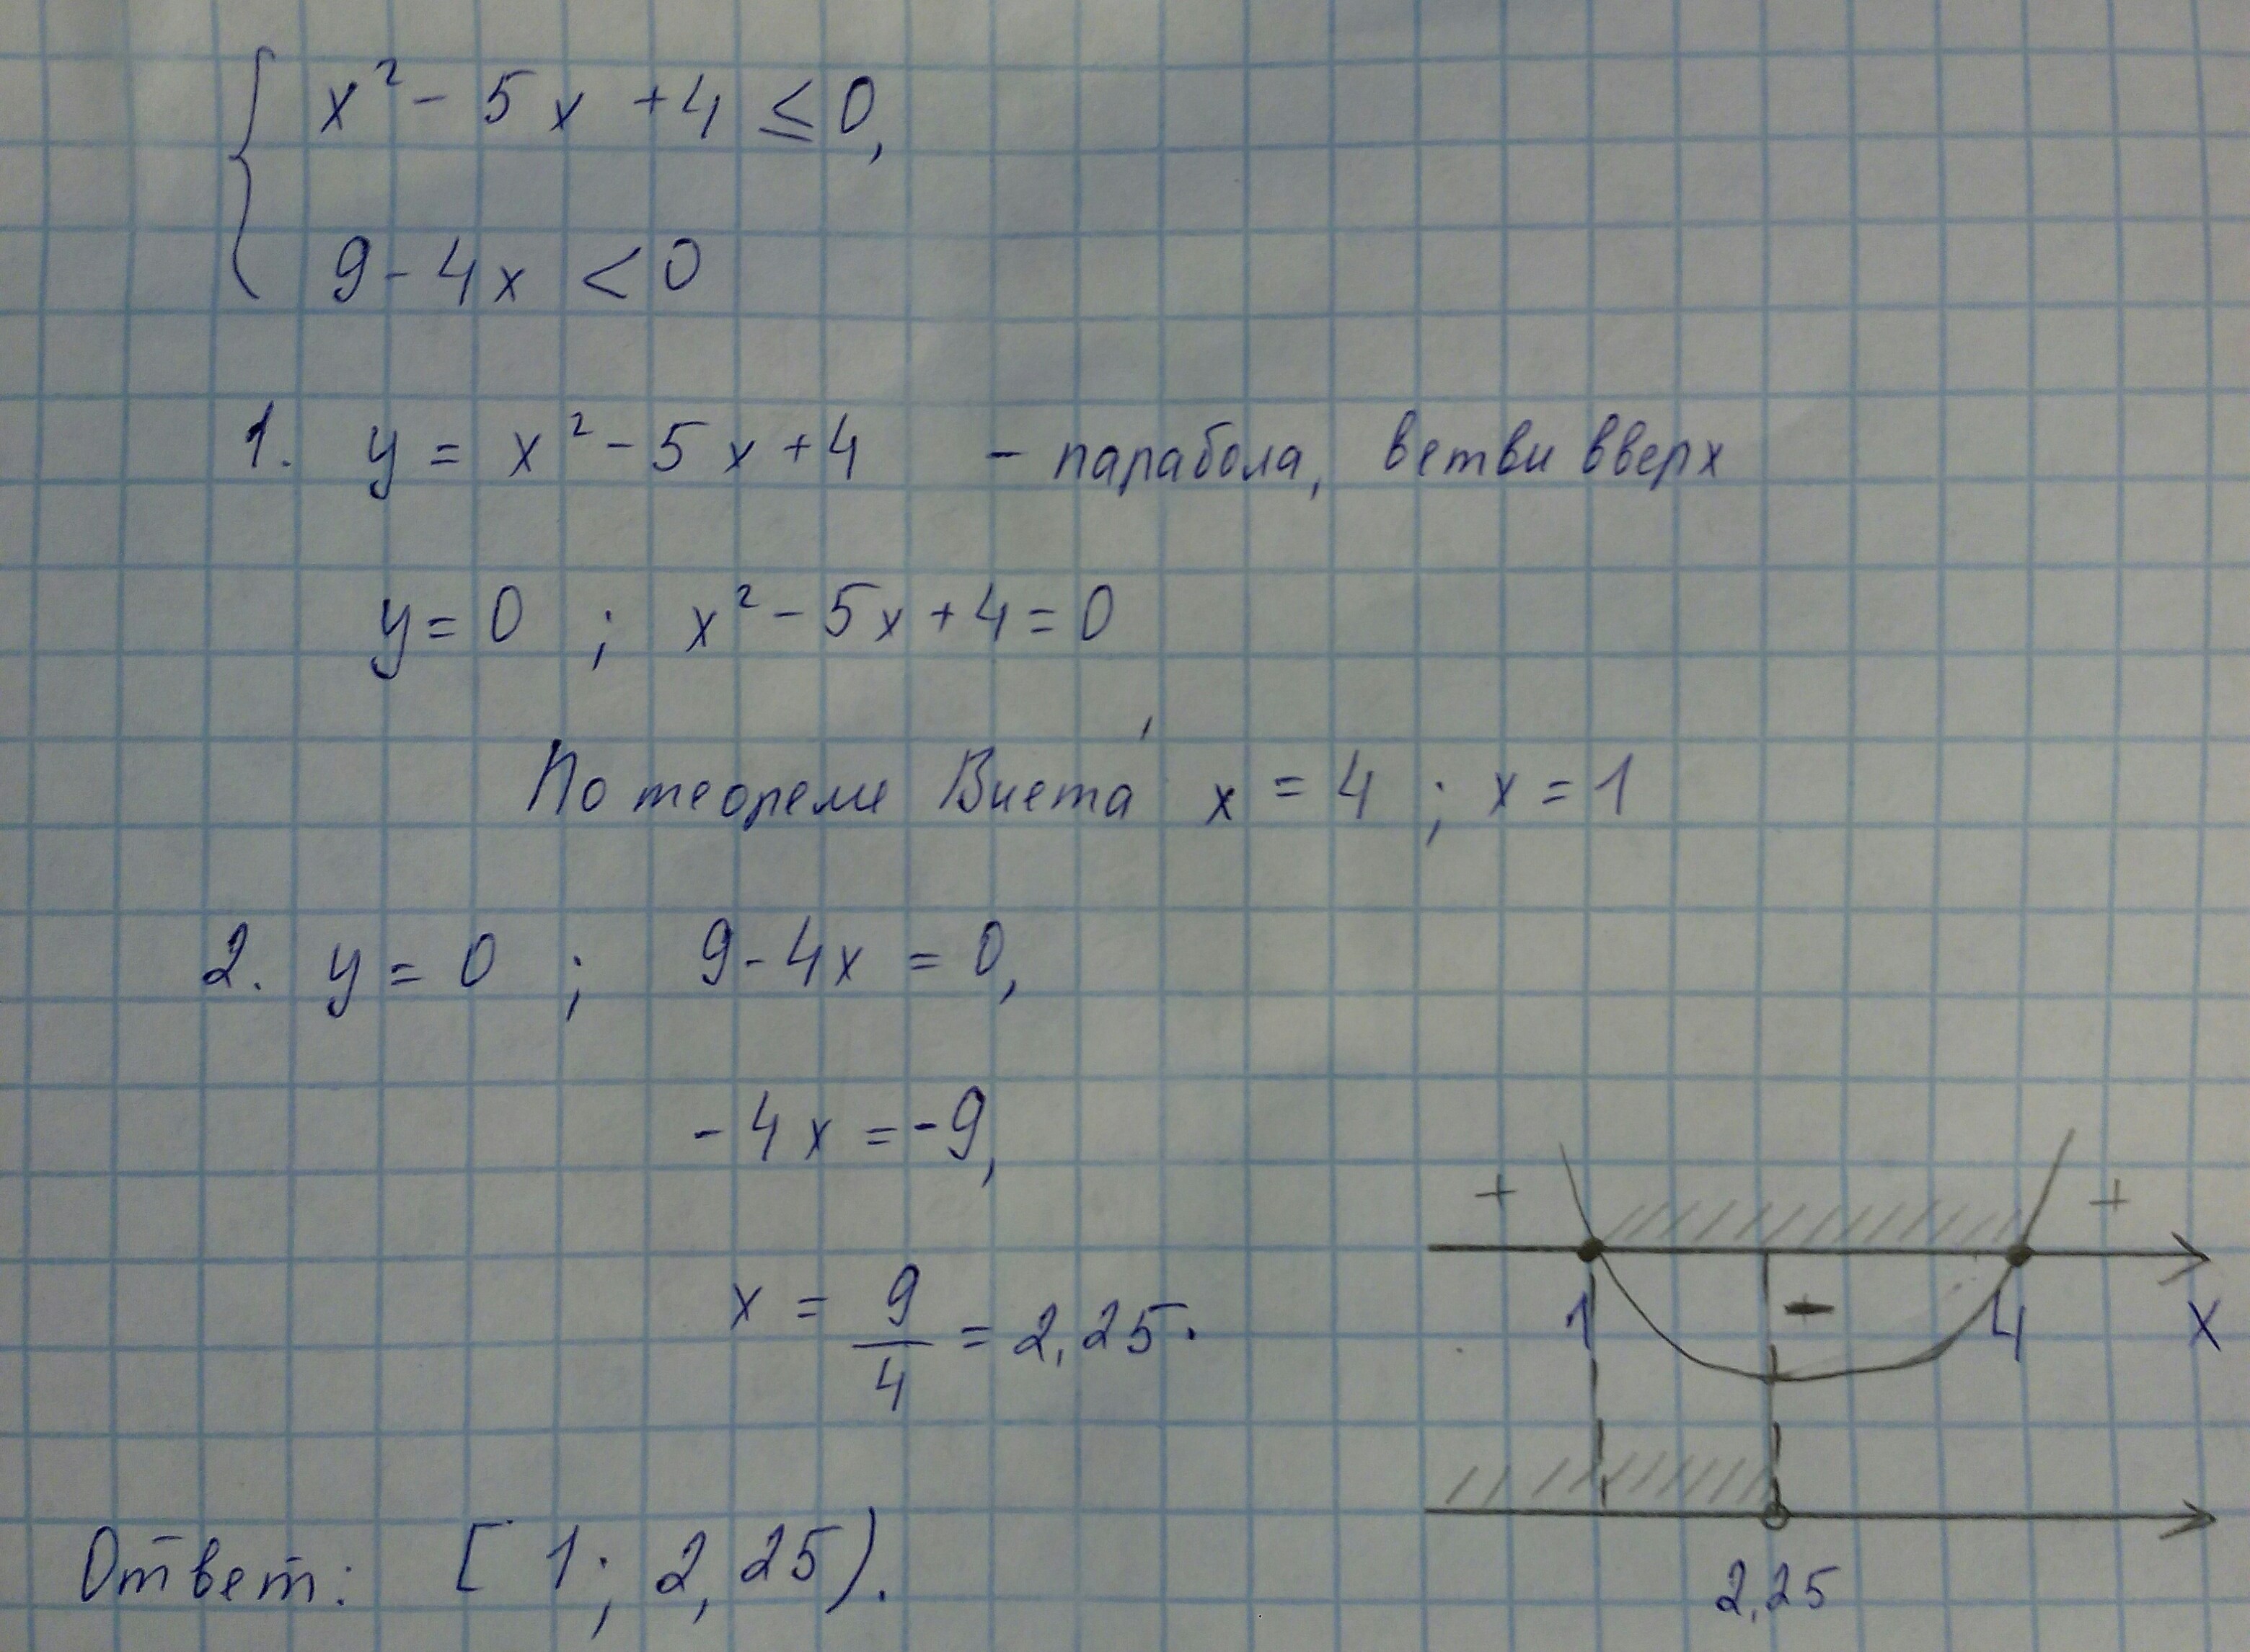 { x² - 5x + 4 ≤ 0,
9 - 4x < 0
1. y = x² - 5x + 4 - парабола, ветви вверх
y = 0 ; x² - 5x + 4 = 0
По теореме Виета x = 4 ; x = 1
2. y = 0 ; 9 - 4x = 0,
- 4x = -9,
x = 9/4 = 2,25.
+ +
1 - 4 x
2,25
Ответ: [ 1; 2,25).